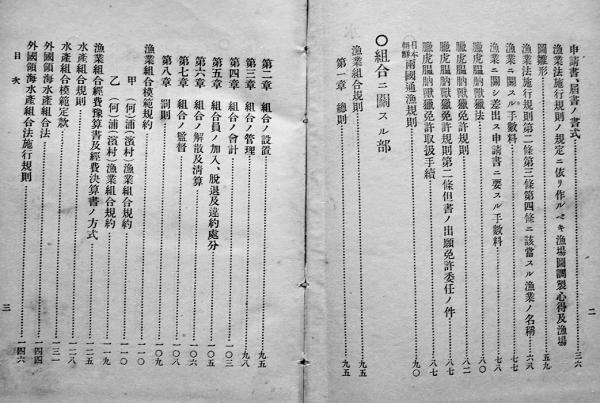 申請書、屆書ノ書式……三六
漁業法施行規則ノ規定ニ依リ作ルベキ漁場圖調製心得及漁場
圖雛形……五九
漁業法施行規則第二條第三條第四條ニ該當スル漁業ノ名稱……六八
漁業ニ關スル手數料……七七
漁業ニ關シ差出ス申請書ニ要スル手數料……七八
臘虎膃肭獸獵法……八〇
臘虎膃肭獸獵免許規則……八二
臘虎膃肭獸獵免許規則第二條但書ノ出願免許委任ノ件……八七
臘虎膃肭獸獵免許取扱手續……八七
日本朝鮮兩國通漁規則……九〇
〇組合ニ關スル部
漁業組合規則……九五
第一章 總則……九五
二
第二章 組合ノ設置……九五
第三章 組合ノ管理……九八
第四章 組合ノ會計……一〇三
第五章 組合員ノ加入、脫退及違約處分……一〇五
第六章 組合ノ解散及清算……一〇六
第七章 組合ノ監督……一〇八
第八章 罰則……一〇九
漁業組合模範規約……一一〇
甲 (何)浦(濱村)漁業組合規約……一一〇
乙 (何)浦(濱村)漁業組合規約……一一九
漁業組合經費豫算書及經費決算書ノ方式……一二五
水產組合規則……一二八
水產組合模範定款……一三一
外國領海水產組合法……一四四
外國領海水產組合法施行規則……一四六
目次
三